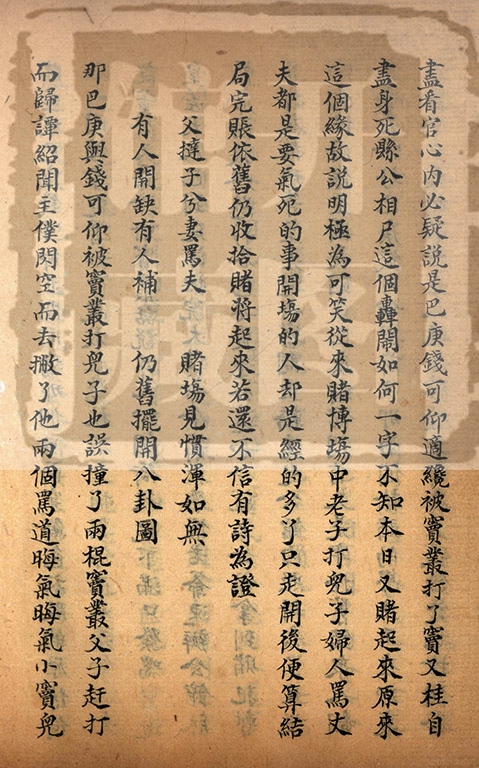 盡看官心內必疑說是巴庚錢可仰適纔被竇叢打了竇又桂自
盡身死縣公相尸這個轟鬧如何一字不知本日又賭起來原來
這個緣故說明極為可笑從來賭博場中老子打兒子婦人罵丈
夫都是要氣死的事開塲的人却是經的多了只走開後便算結
局完賬依舊仍收拾賭將起來若還不信有詩為證
父撻子兮妻罵夫賭塲見慣渾如無
有人開缺有人補仍舊擺開八卦圖
那巴庚與錢可仰被竇叢打兒子也誤撞了兩棍竇叢父子赶打
而歸譚紹聞主僕閃空而去撇了他兩個罵道晦氣晦氣小竇兒